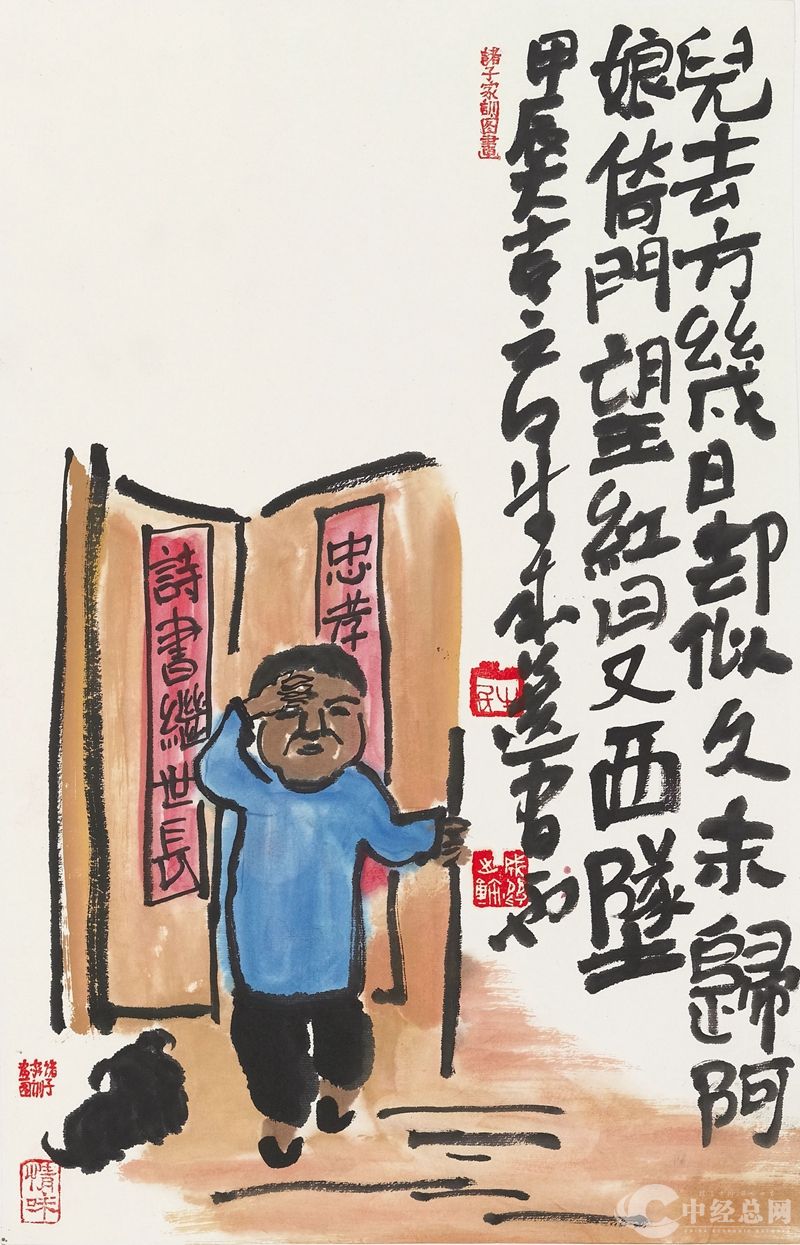 兒去方幾日却似久未歸阿
娘倚門望紅日又西墜
甲辰大吉
諸子家訓图畫
忠孝
詩書繼世長
情味
中经总网